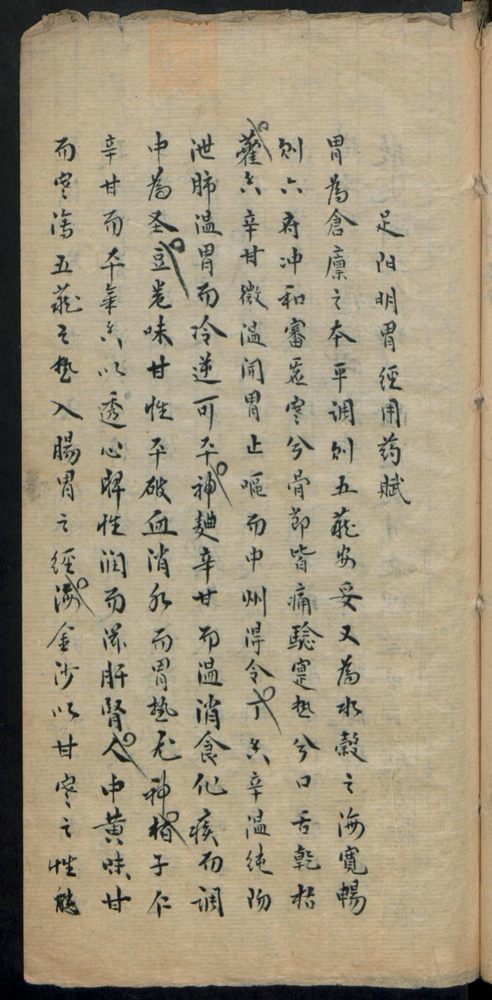 足阳明胃經用药賦
胃為倉廩之本平调则五蔵安妥又為水穀之海寛暢
则六府冲和審虚寒兮骨節皆痛驗寔热兮口舌乾枯
藿香辛甘微温開胃止嘔而中州得令丁香辛温纯阳
泄肺温胃而冷逆可平神麯辛甘而温消食化痰而调
中為圣豆卷味甘性平破血消水而胃热尤神栢子仁
辛甘而平氣香以透心脾性润而滋肝腎人中黄味甘
而寒瀉五蔵之热入腸胃之經海金沙以甘寒之性能